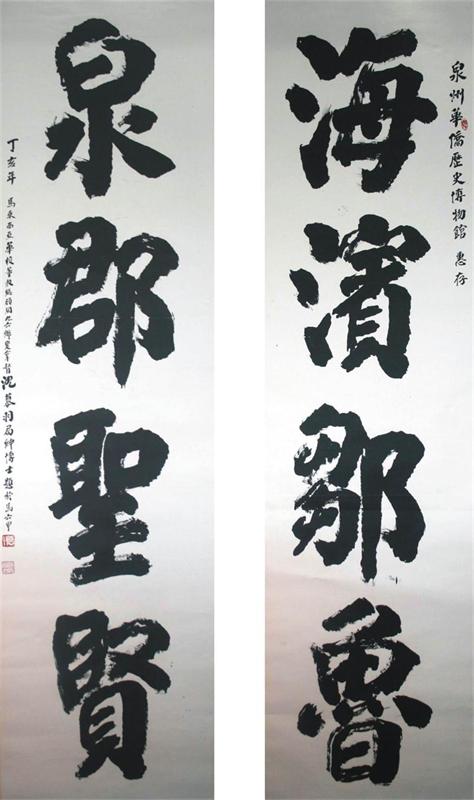 泉州華僑歷史博物館 惠存
海濱鄒魯
泉郡聖賢
丁亥年 馬來西亞華校董教總顧問九六鄉叟拿督沈慕羽局紳博士題於馬六甲